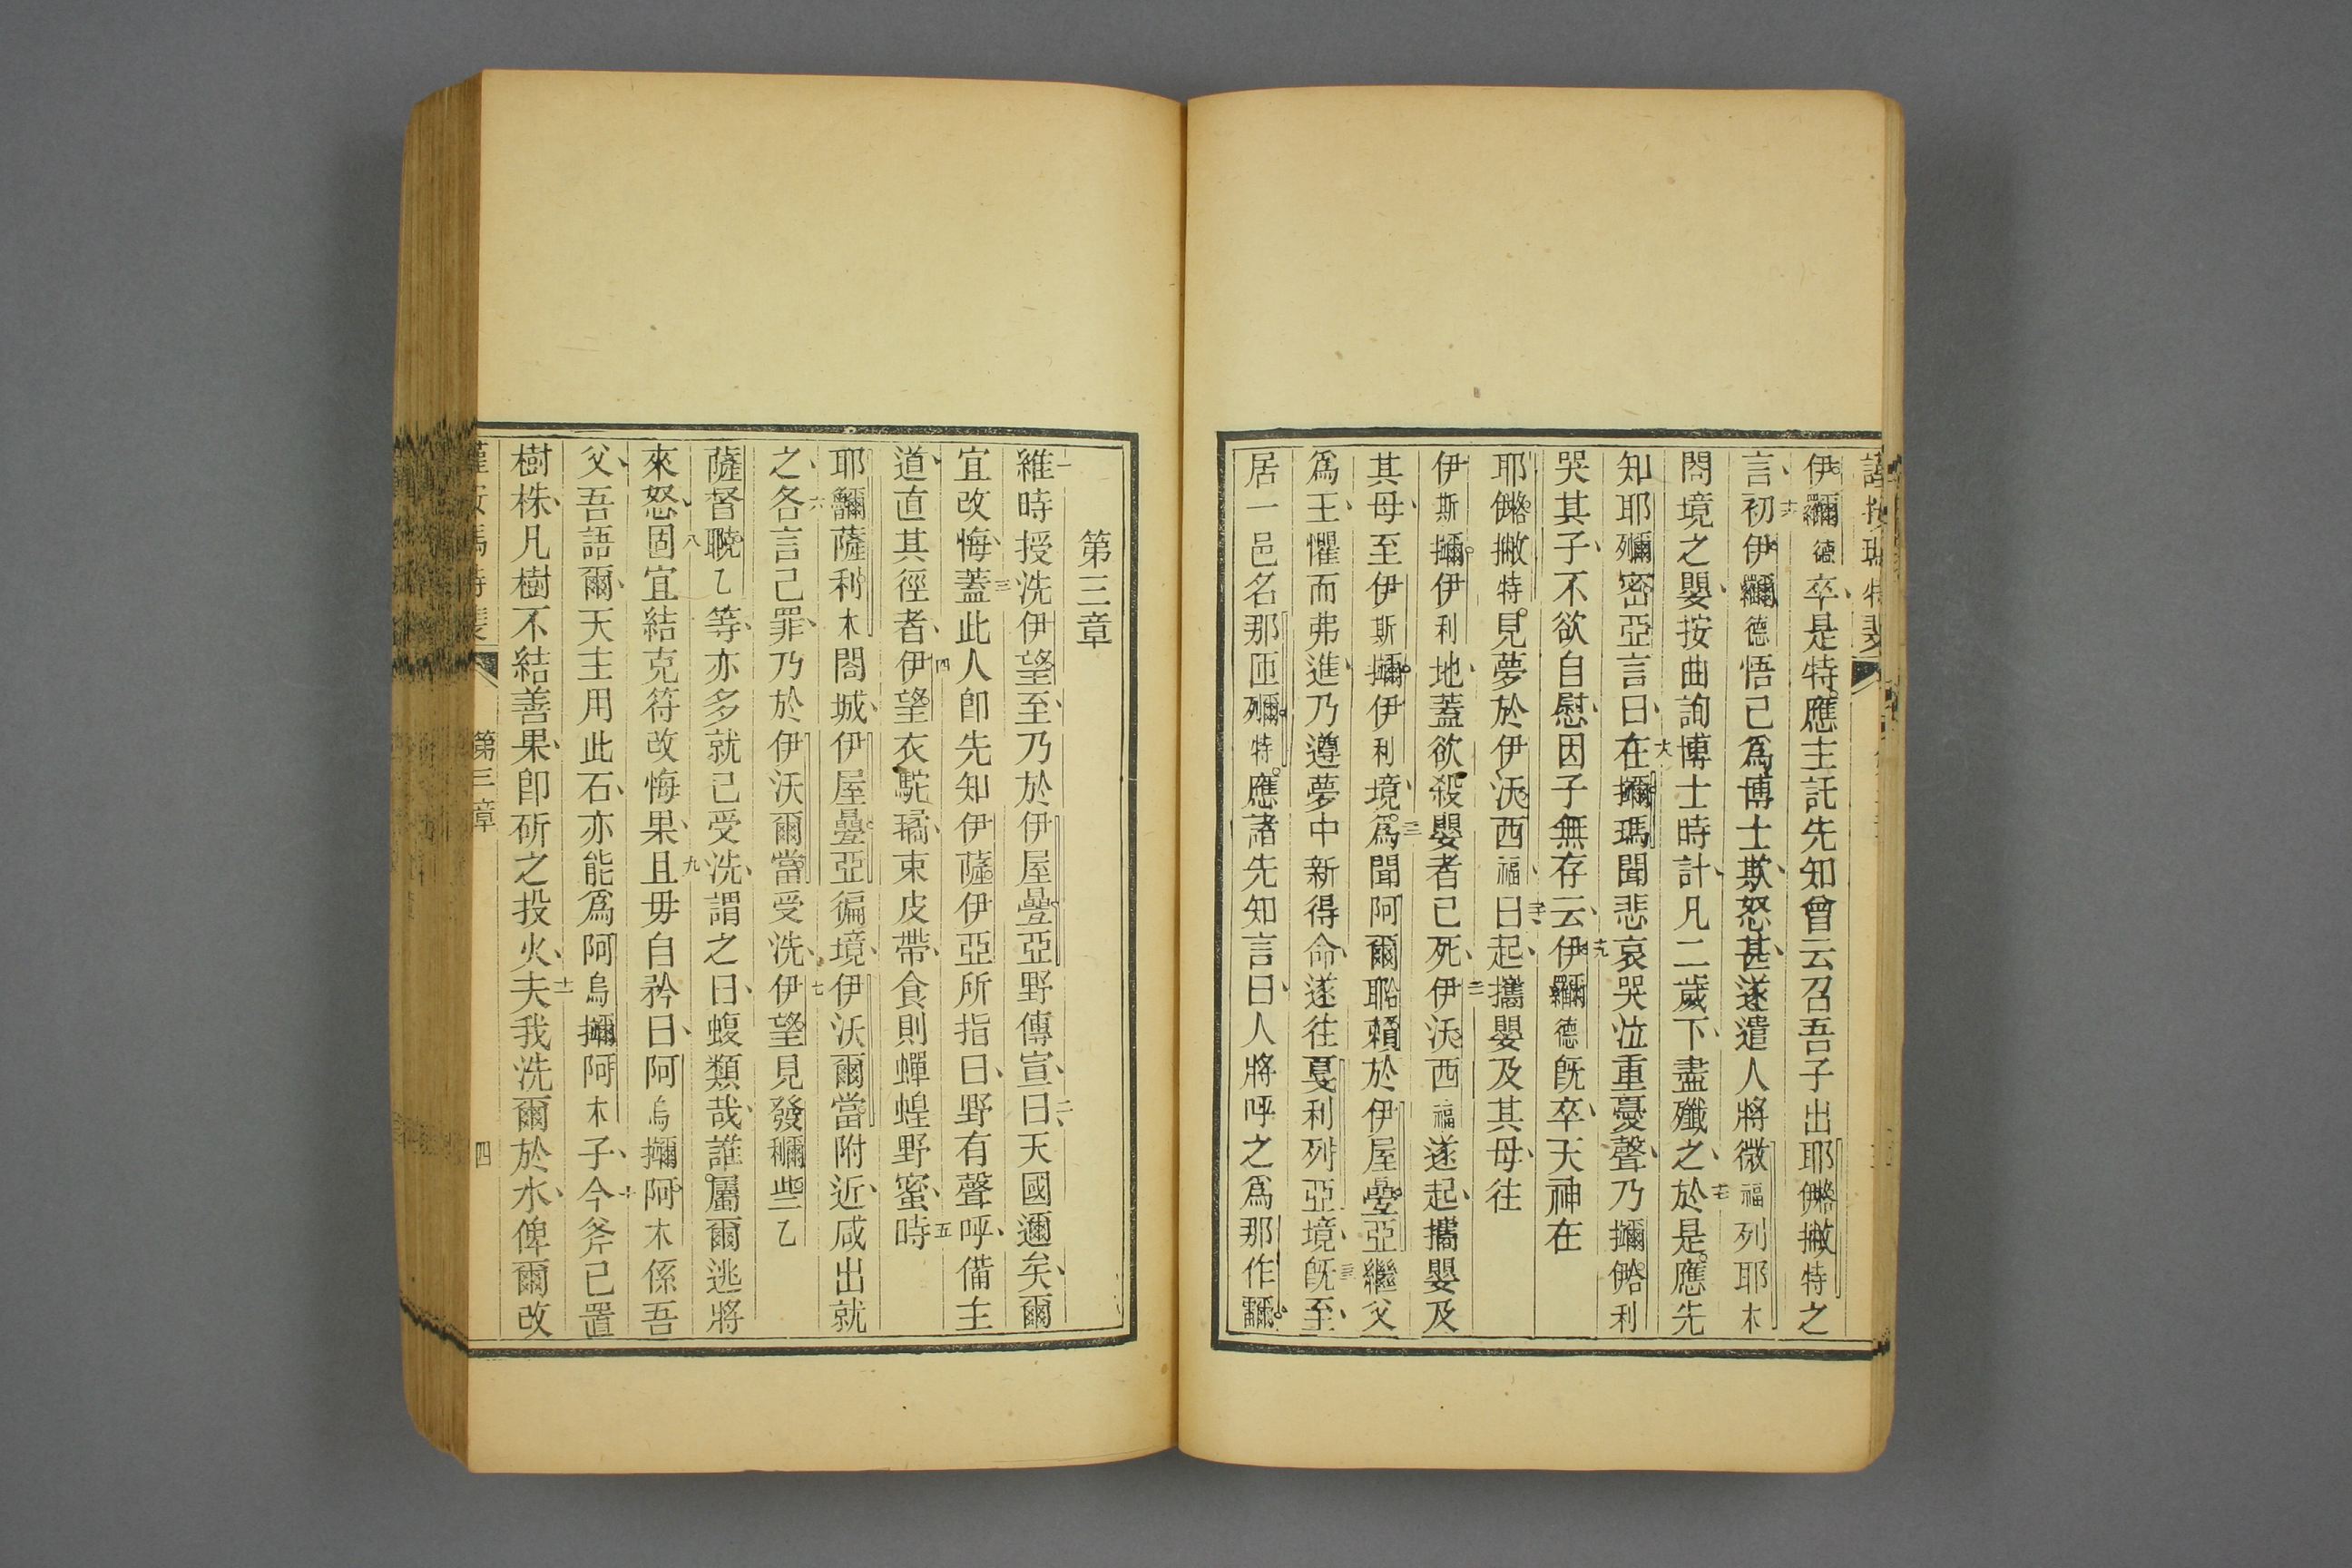 伊德卒是特應主託先知曾云召吾子出耶特之
言十六初伊德悟己爲博士欺怒甚遂遣人將微福列耶木
閤境之嬰按曲詢博士時計凡二歲下盡殲之十七於是應先
知耶密亞言曰十八在瑪聞悲哀哭泣重憂聲乃利
哭其子不欲自慰因子無存云十九伊德旣卒天神在
耶特見夢於伊沃西福曰二十起攜嬰及其母往
伊斯伊利地蓋欲殺嬰者已死二一伊沃西福遂起攜嬰及
其母至伊斯伊利境二二爲聞阿爾賴於伊屋疊亞繼父
爲王懼而弗進乃遵夢中新得命遂往戛利列亞境二三旣至
居一邑名那匝特應諸先知言曰人將呼之爲那作
第三章
一維時授洗伊望至乃於伊屋疊亞野傳宣二曰天國邇矣爾
宜改悔三蓋此人卽先知伊薩伊亞所指曰野有聲呼備主
道直其徑者四伊望衣駝毛束皮帶食則蟬蝗野蜜五時
耶薩利木閤城伊屋疊亞徧境伊沃爾當附近咸出就
之六各言己罪乃於伊沃爾當受洗七伊望見發些乙
薩督乙等亦多就己受洗謂之曰蝮類哉誰屬爾逃將
來怒八固宜結克符改悔果九且毋自矜曰阿烏阿木係吾
父吾語爾天主用此石亦能爲阿烏阿木子十今斧已置
樹株凡樹不結善果卽斫之投火十一夫我洗爾於水俾爾改
第三章
四